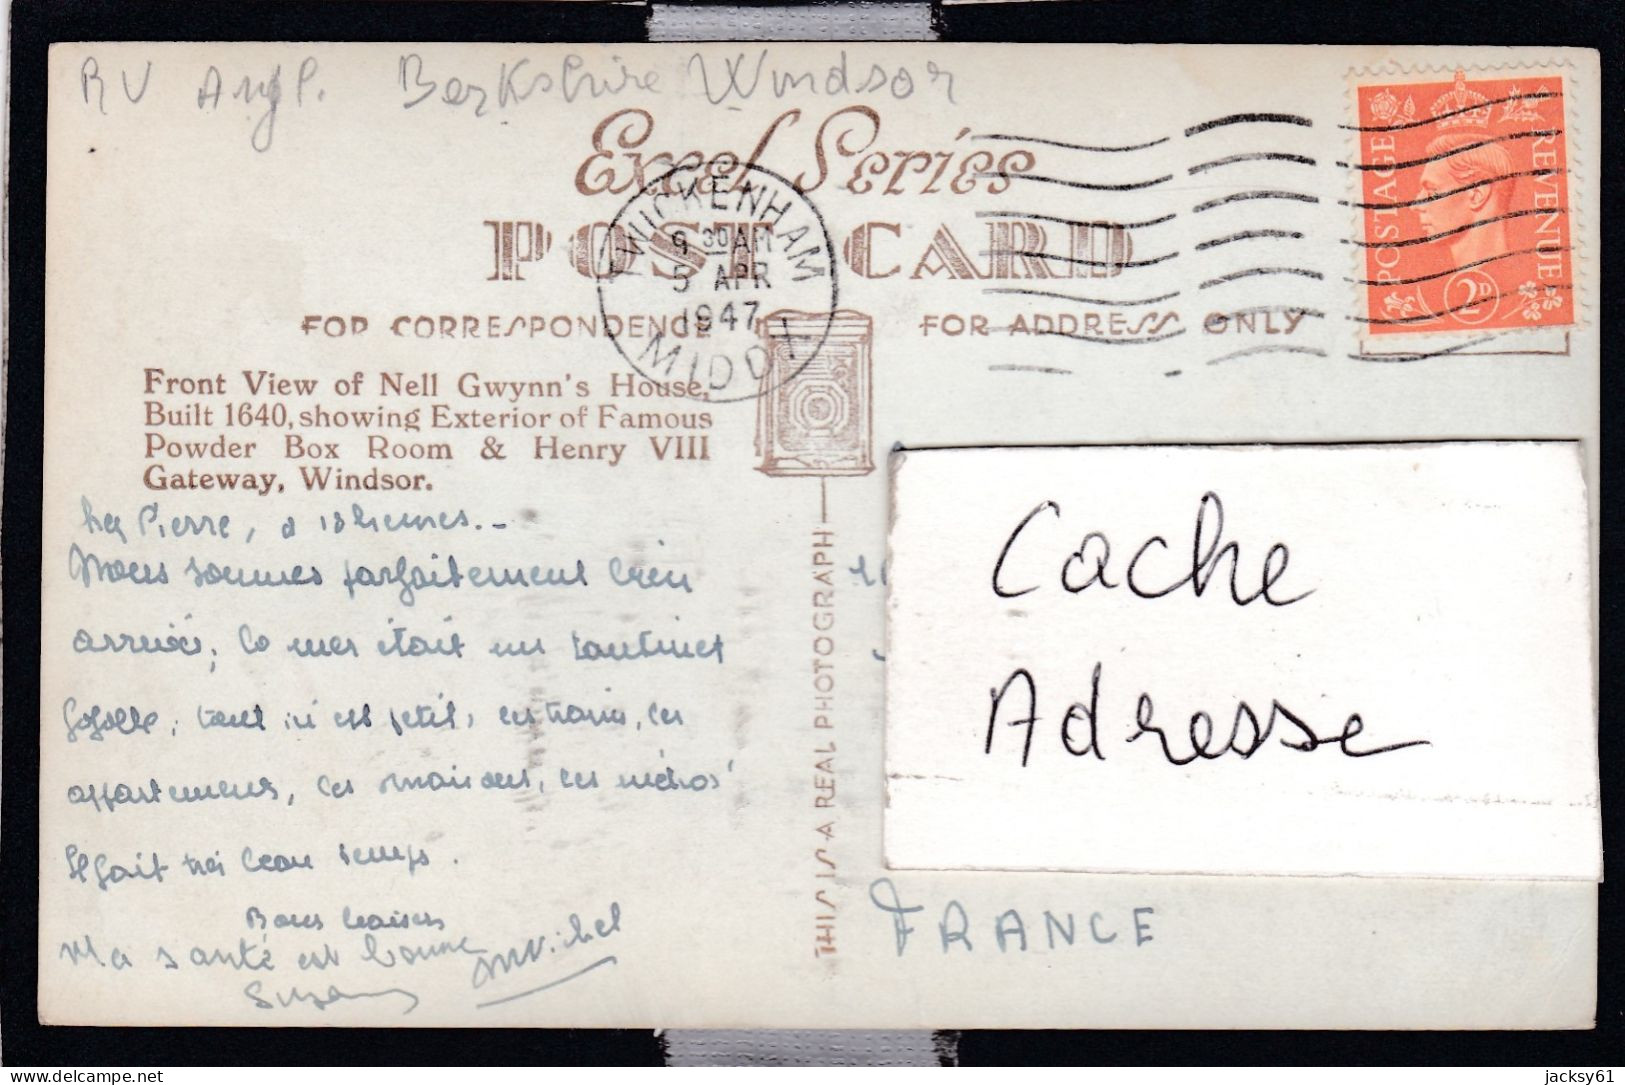 RV Angl. Berkshire Windsor
Excel Series
POST CARD
TWICKENHAM
9 30 AM
5 APR
1947
MIDDX
POSTAGE REVENUE
2D
FOR CORRESPONDENCE FOR ADDRESS ONLY
Front View of Nell Gwynn's House,
Built 1640, showing Exterior of Famous
Powder Box Room & Henry VIII
Gateway, Windsor.
THIS IS A REAL PHOTOGRAPH
Pierre, à 18 heures.-
Nous sommes parfaitement bien
arrivés, la mer était un tantinet
, tout ici est petit, les trains, les
appartements, les maisons, les métros
Il fait très beau temps.
Bons baisers
Ma santé est bonne Michel
Suzanne
Cache
Adresse
FRANCE
jacksy61